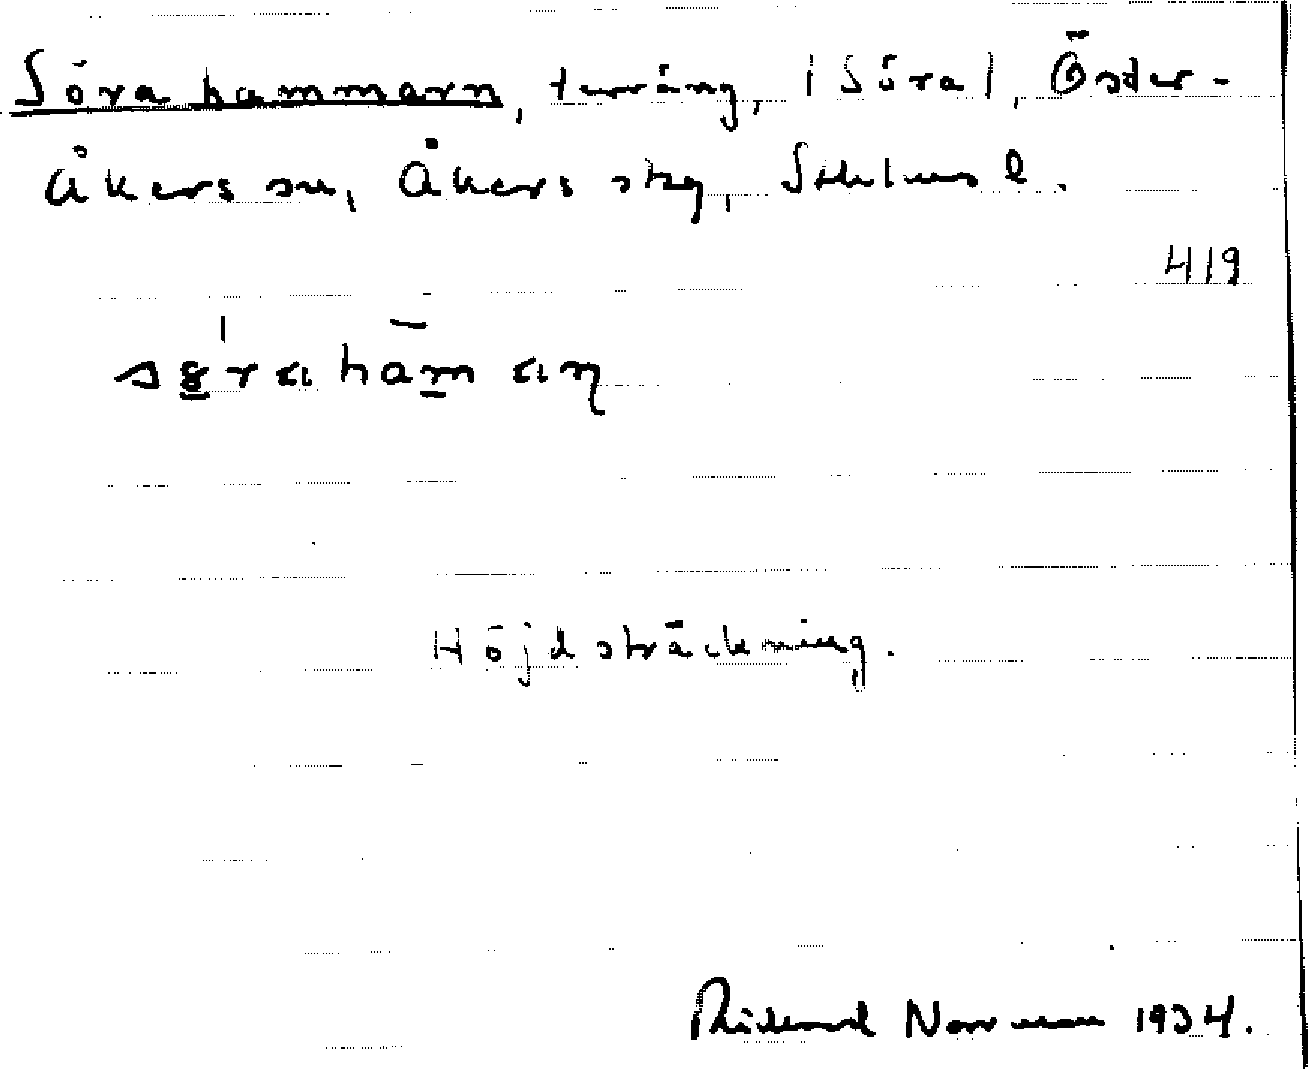 Söra hammarn, terräng, |Söra|, Öster-
Åkers sn, Åkers skg, Sthlms l.
419
sөrahamaɳ
Höjdsträckning.
Rickard Norrman 1934.